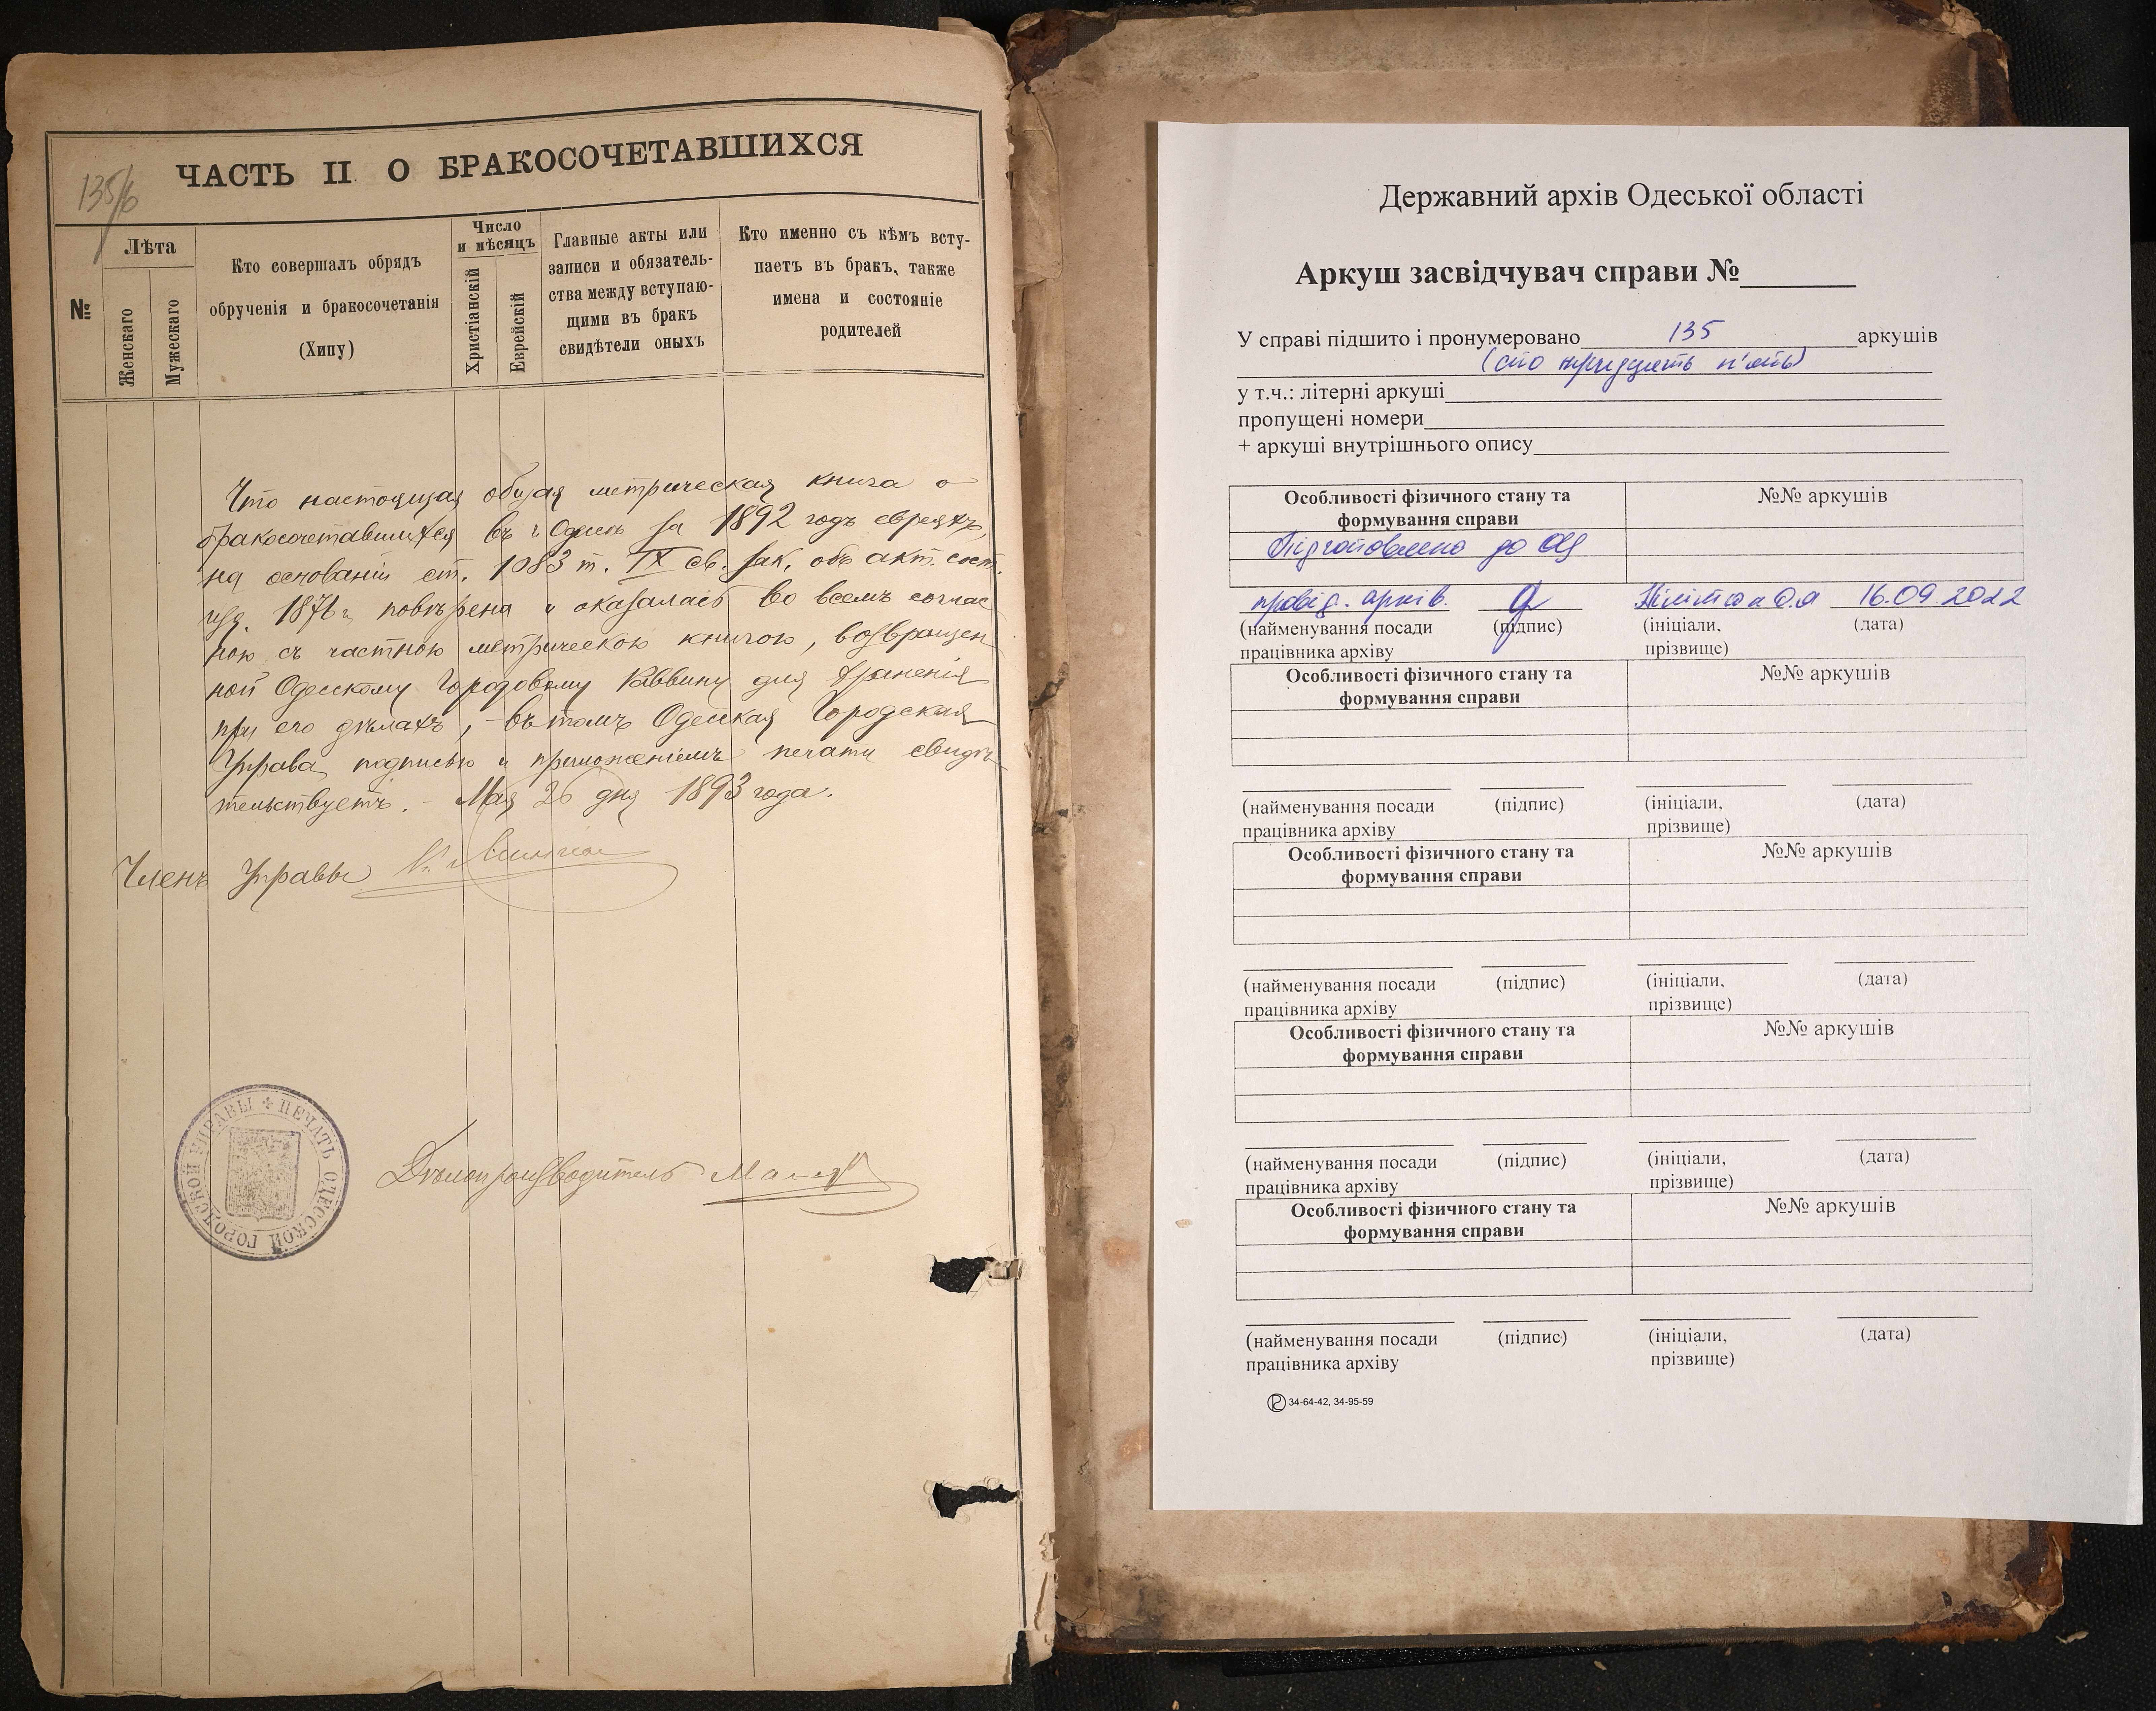 ЧАСТЬ II О БРАКОСОЧЕТАВШИХСЯ
135/б
№
Лѣта
Женскаго
Мужескаго
Кто совершалъ обрядъ
обрученія и бракосочетанія
(Хипу)
Число
и мѣсяцъ
Христіанскій
Еврейскій
Главные акты или
записи и обязатель-
ства между вступаю-
щими въ бракъ
свидѣтели оныхъ
Кто именно съ кѣмъ всту-
паетъ въ бракъ, также
имена и состояніе
родителей
Что настоящая общая метрическая книга о
бракосочетавшихся въ г. Одессѣ за 1892 годъ евреяхъ,
на основаніи ст. 1083 т. IX св. зак. объ акт. сост.
изд. 1876 г. повѣрена и оказалась во всемъ соглас
ною съ частною метрическою книгою, возвращен
ной Одесскому Городовому Раввину для храненія
при его дѣлахъ, – въ томъ Одесская Городская
Управа подписью и приложеніемъ печати свидѣ
тельствуетъ. – Мая 26 дня 1893 года.
Членъ Управы
ПЕЧАТЬ ОДЕССКОЙ ГОРОДСКОЙ УПРАВЫ
Дѣлопроизводитель
Державний архів Одеської області
Аркуш засвідчувач справи №
У справі підшито і пронумеровано 135 аркушів
(сто тридцять п'ять)
у т.ч.: літерні аркуші
пропущені номери
+ аркуші внутрішнього опису
Особливості фізичного стану та
формування справи
№№ аркушів
Підготовлено до ОЦ
провід. архів. 16.09.2022
(найменування посади (підпис) (ініціали, (дата)
працівника архіву прізвище)
Особливості фізичного стану та
формування справи
№№ аркушів
(найменування посади (підпис) (ініціали, (дата)
працівника архіву прізвище)
Особливості фізичного стану та
формування справи
№№ аркушів
(найменування посади (підпис) (ініціали, (дата)
працівника архіву прізвище)
Особливості фізичного стану та
формування справи
№№ аркушів
(найменування посади (підпис) (ініціали, (дата)
працівника архіву прізвище)
Особливості фізичного стану та
формування справи
№№ аркушів
(найменування посади (підпис) (ініціали, (дата)
працівника архіву прізвище)
34-64-42, 34-95-59